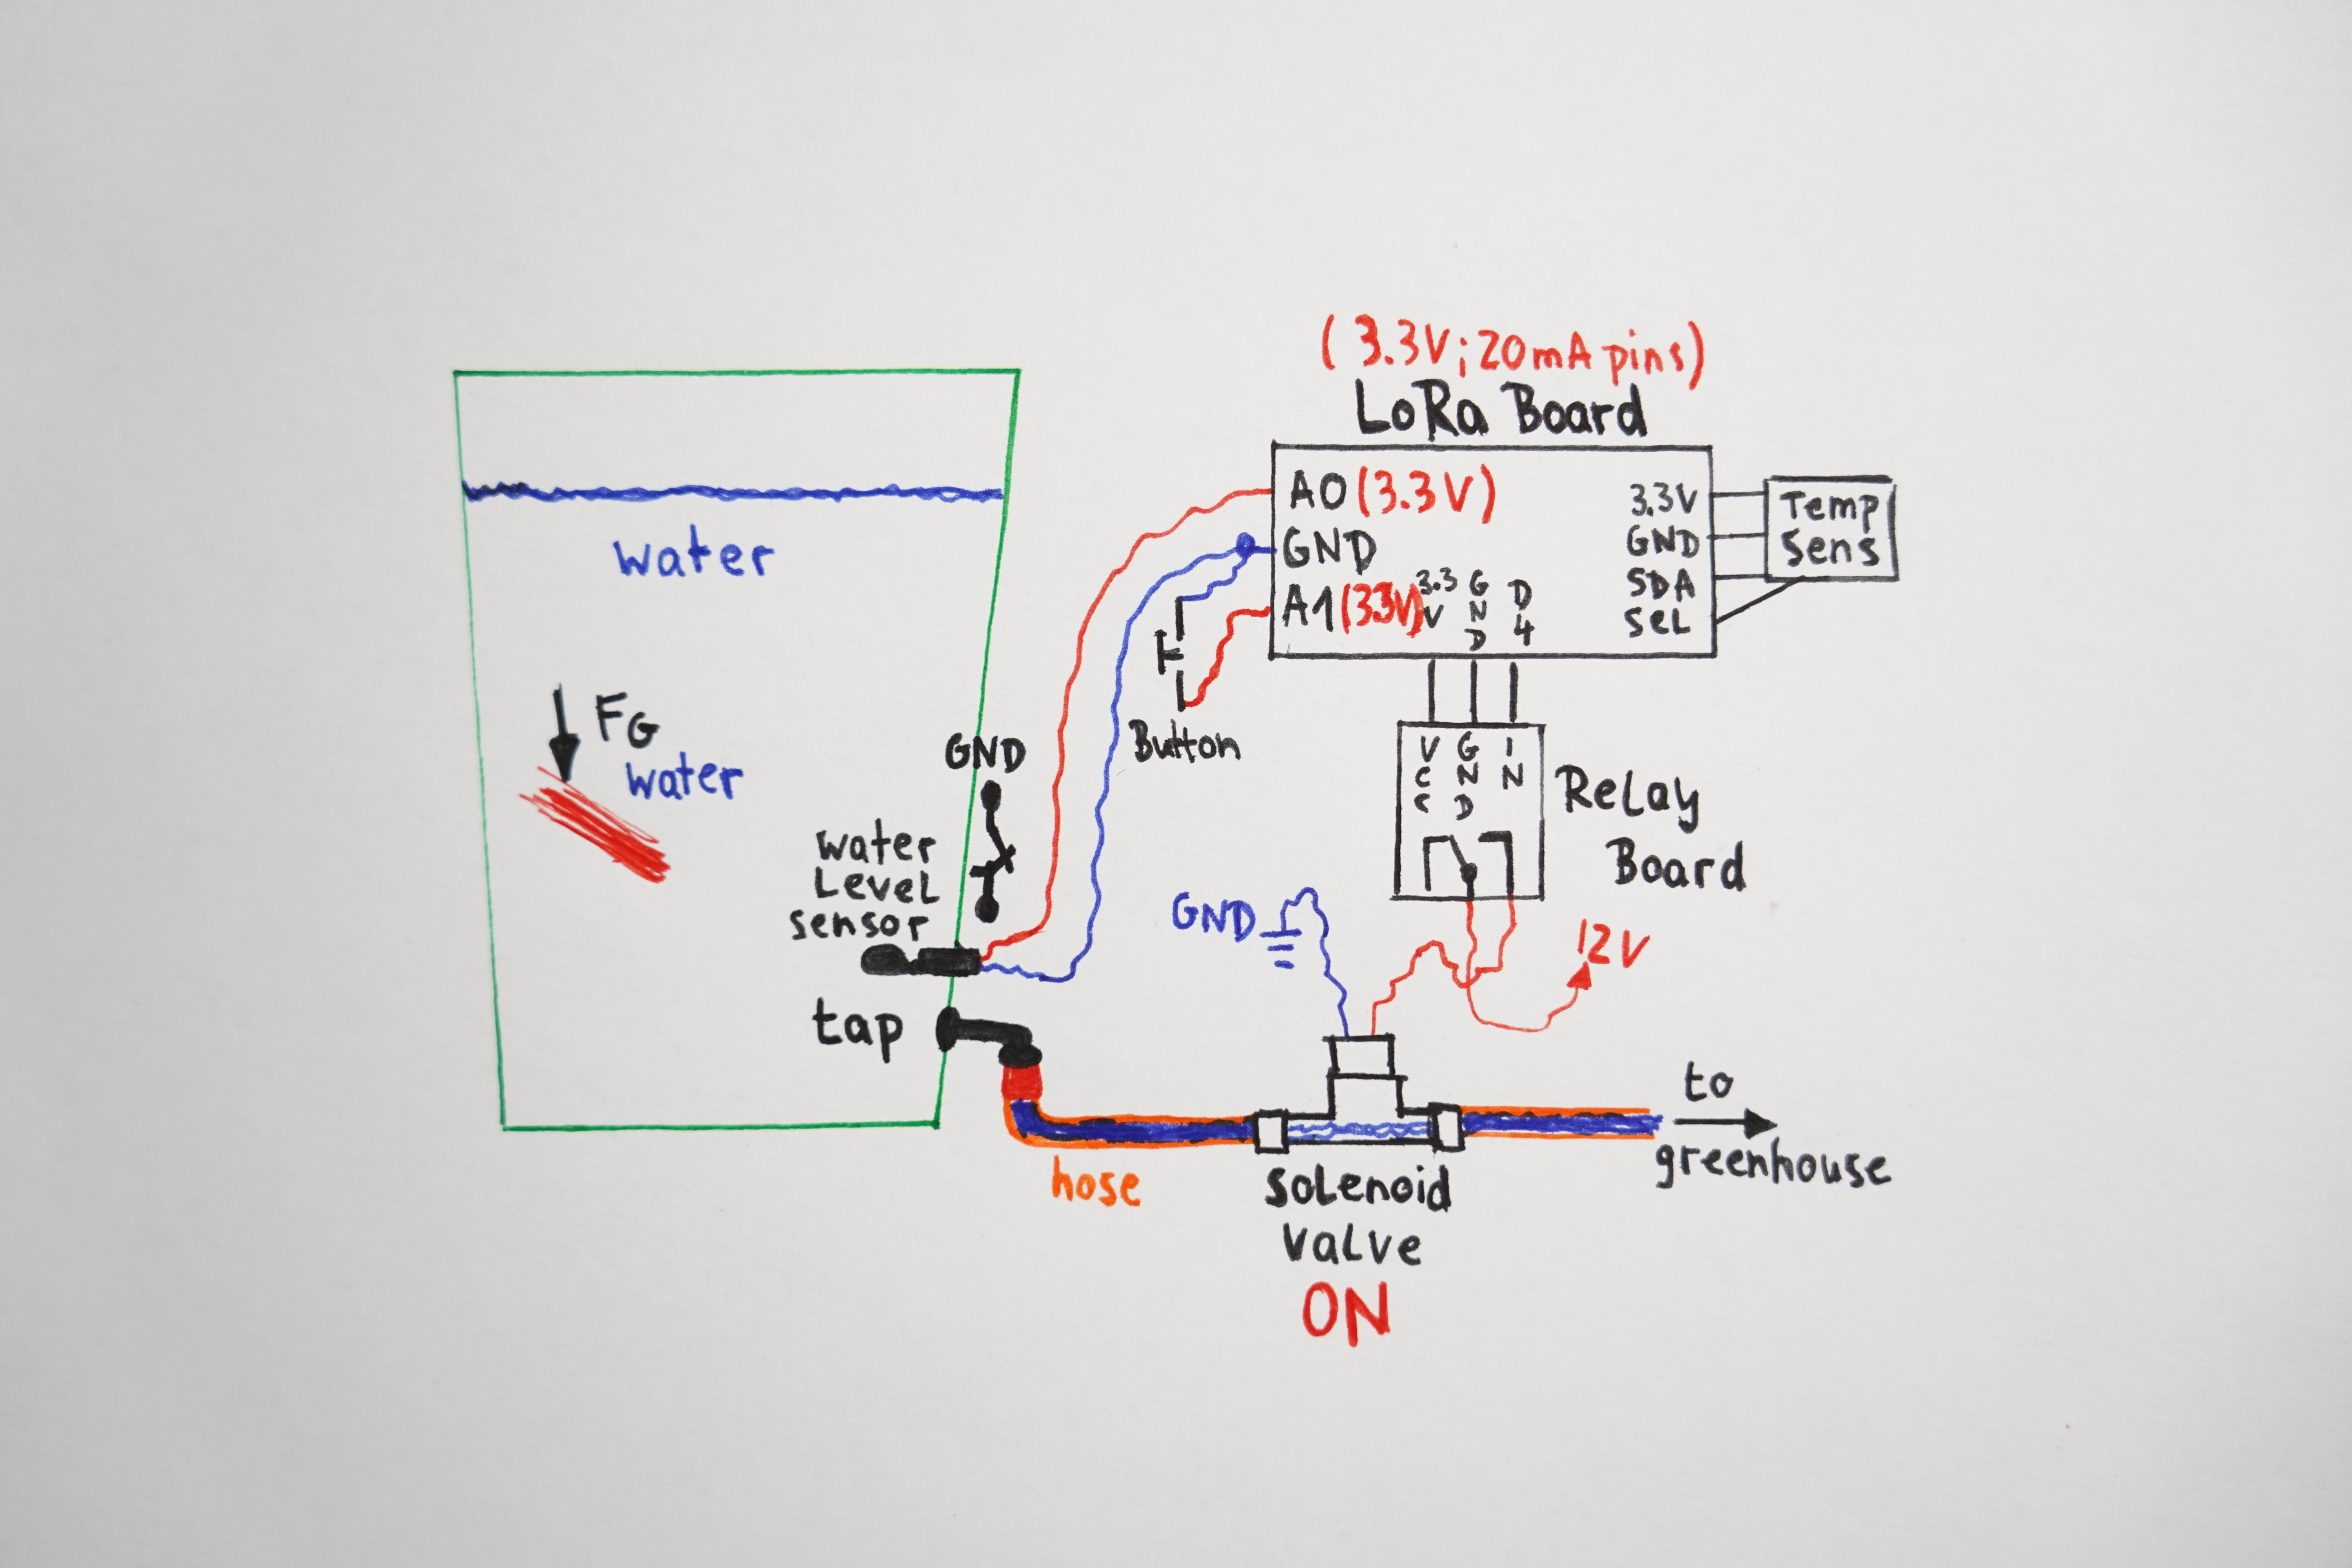 (3.3V; 20mA pins)
LoRa Board
A0 (3.3V)
GND
A1 (33V)
3.3V
GND
D4
3.3V
GND
SDA
SCL
Temp
Sens
water
FG
water
GND
water
Level
sensor
tap
Button
VCC
GND
IN
Relay
Board
GND
12V
hose
solenoid
valve
ON
to
greenhouse